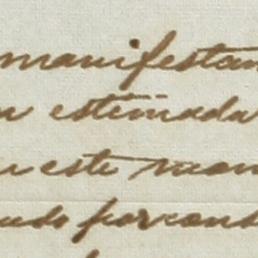 manifestan
n estimada
n este mom
udo por cond